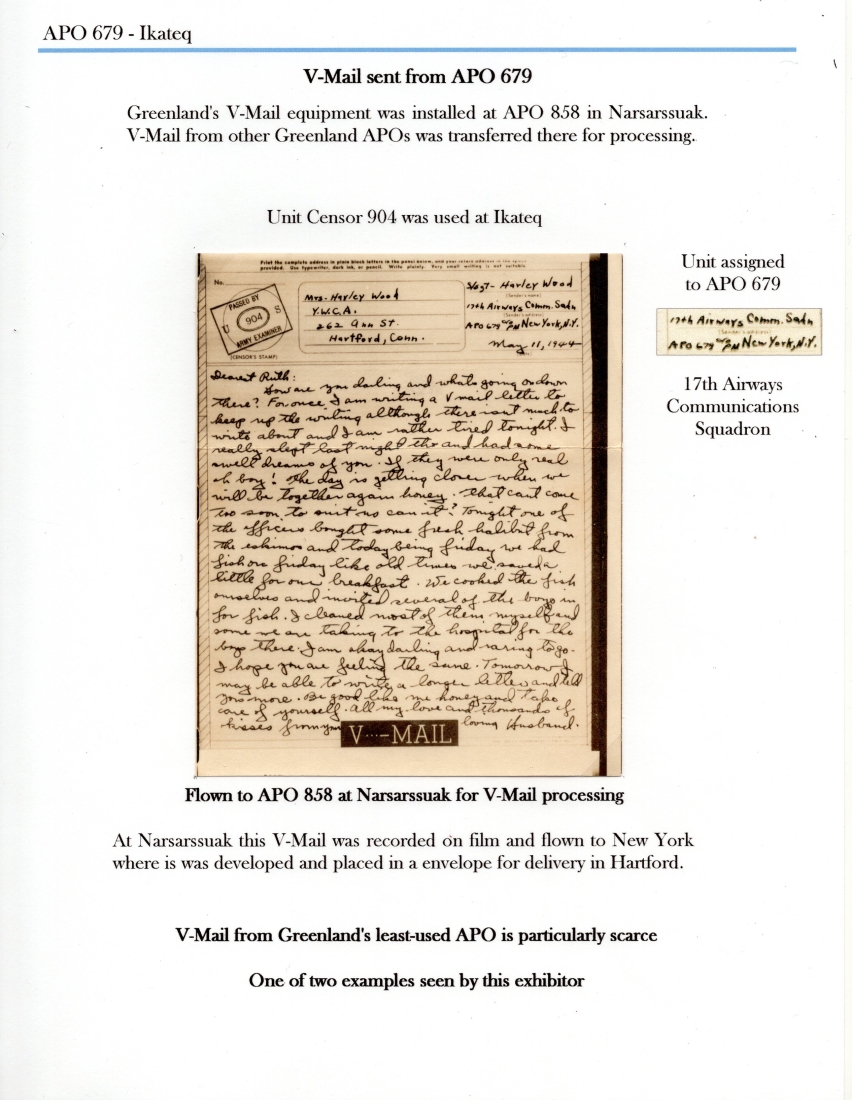 APO 679 - Ikateq
V-Mail sent from APO 679
Greenland's V-Mail equipment was installed at APO 858 in Narsarssuak.
V-Mail from other Greenland APOs was transferred there for processing.
Unit Censor 904 was used at Ikateq
Print the complete address in plain block letters in the panel below, and your return address in the space
provided. Use typewriter, dark ink, or pencil. Write plainly. Very small writing is not suitable.
No.
PASSED BY
U 904 S
ARMY EXAMINER
(CENSOR'S STAMP)
Mrs. Harley Wood
Y.W.C.A.
262 Ann St.
Hartford, Conn.
S/Sgt - Harley Wood
(Sender's name)
17th Airways Comm. Sqdn
(Sender's address)
APO 679 c/o PM New York, N.Y.
May 11, 1944
Dearest Ruth:
How are you darling and whats going on down
there? For once I am writing a V mail letter to
keep up the writing although there isnt much to
write about and I am rather tired tonight. I
really slept last night tho and had some
swell dreams of you. If they were only real
oh boy! The day is getting closer when we
will be together again honey. That cant come
too soon to suit us can it? Tonight one of
the officers bought some fresh halibut from
the eskimos and today being friday we had
fish on friday like old times we saved a
little for our breakfast. We cooked the fish
ourselves and invited several of the boys in
for fish. I cleaned most of them myself and
some we are taking to the hospital for the
boys there. I am okay darling and raring to go.
I hope you are feeling the same. Tomorrow I
may be able to write a longer letter and tell
you more. Be good like me honey and take
care of yourself. All my love and thousands of
kisses from your loving Husband.
V···—MAIL
Unit assigned
to APO 679
17th Airways Comm. Sqdn
(Sender's address)
APO 679 c/o PM New York, N.Y.
17th Airways
Communications
Squadron
Flown to APO 858 at Narsarssuak for V-Mail processing
At Narsarssuak this V-Mail was recorded on film and flown to New York
where is was developed and placed in a envelope for delivery in Hartford.
V-Mail from Greenland's least-used APO is particularly scarce
One of two examples seen by this exhibitor